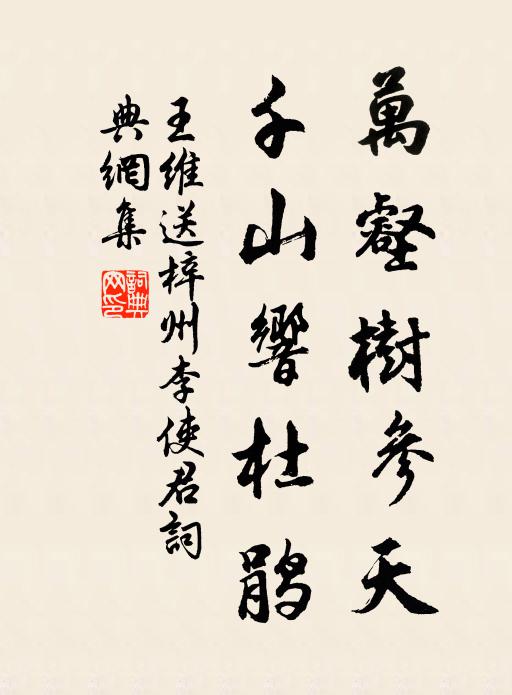 萬壑樹參天
千山響杜鵑
王維送梓州李使君詞
典網集
詞典網印